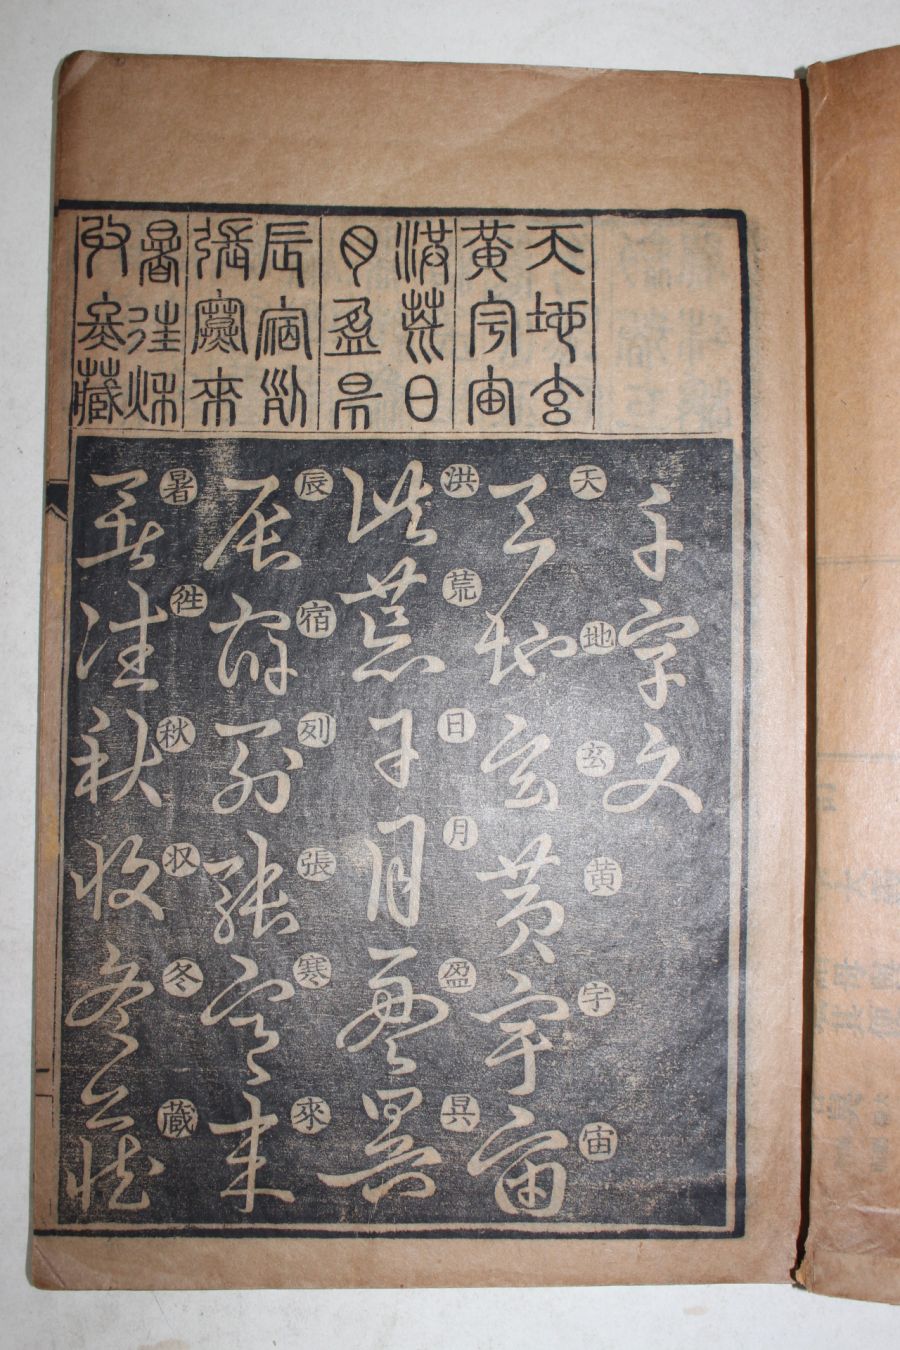 天地玄
黃宇宙
洪荒日
月盈昃
辰宿列
張寒來
暑往秋
收冬藏
千字文
天地玄黄宇宙
天地玄黃宇宙
洪荒日月盈昃
洪荒日月盈昃
辰宿列張寒來
辰宿列張寒來
暑徃秋収冬蔵
暑往秋收冬藏